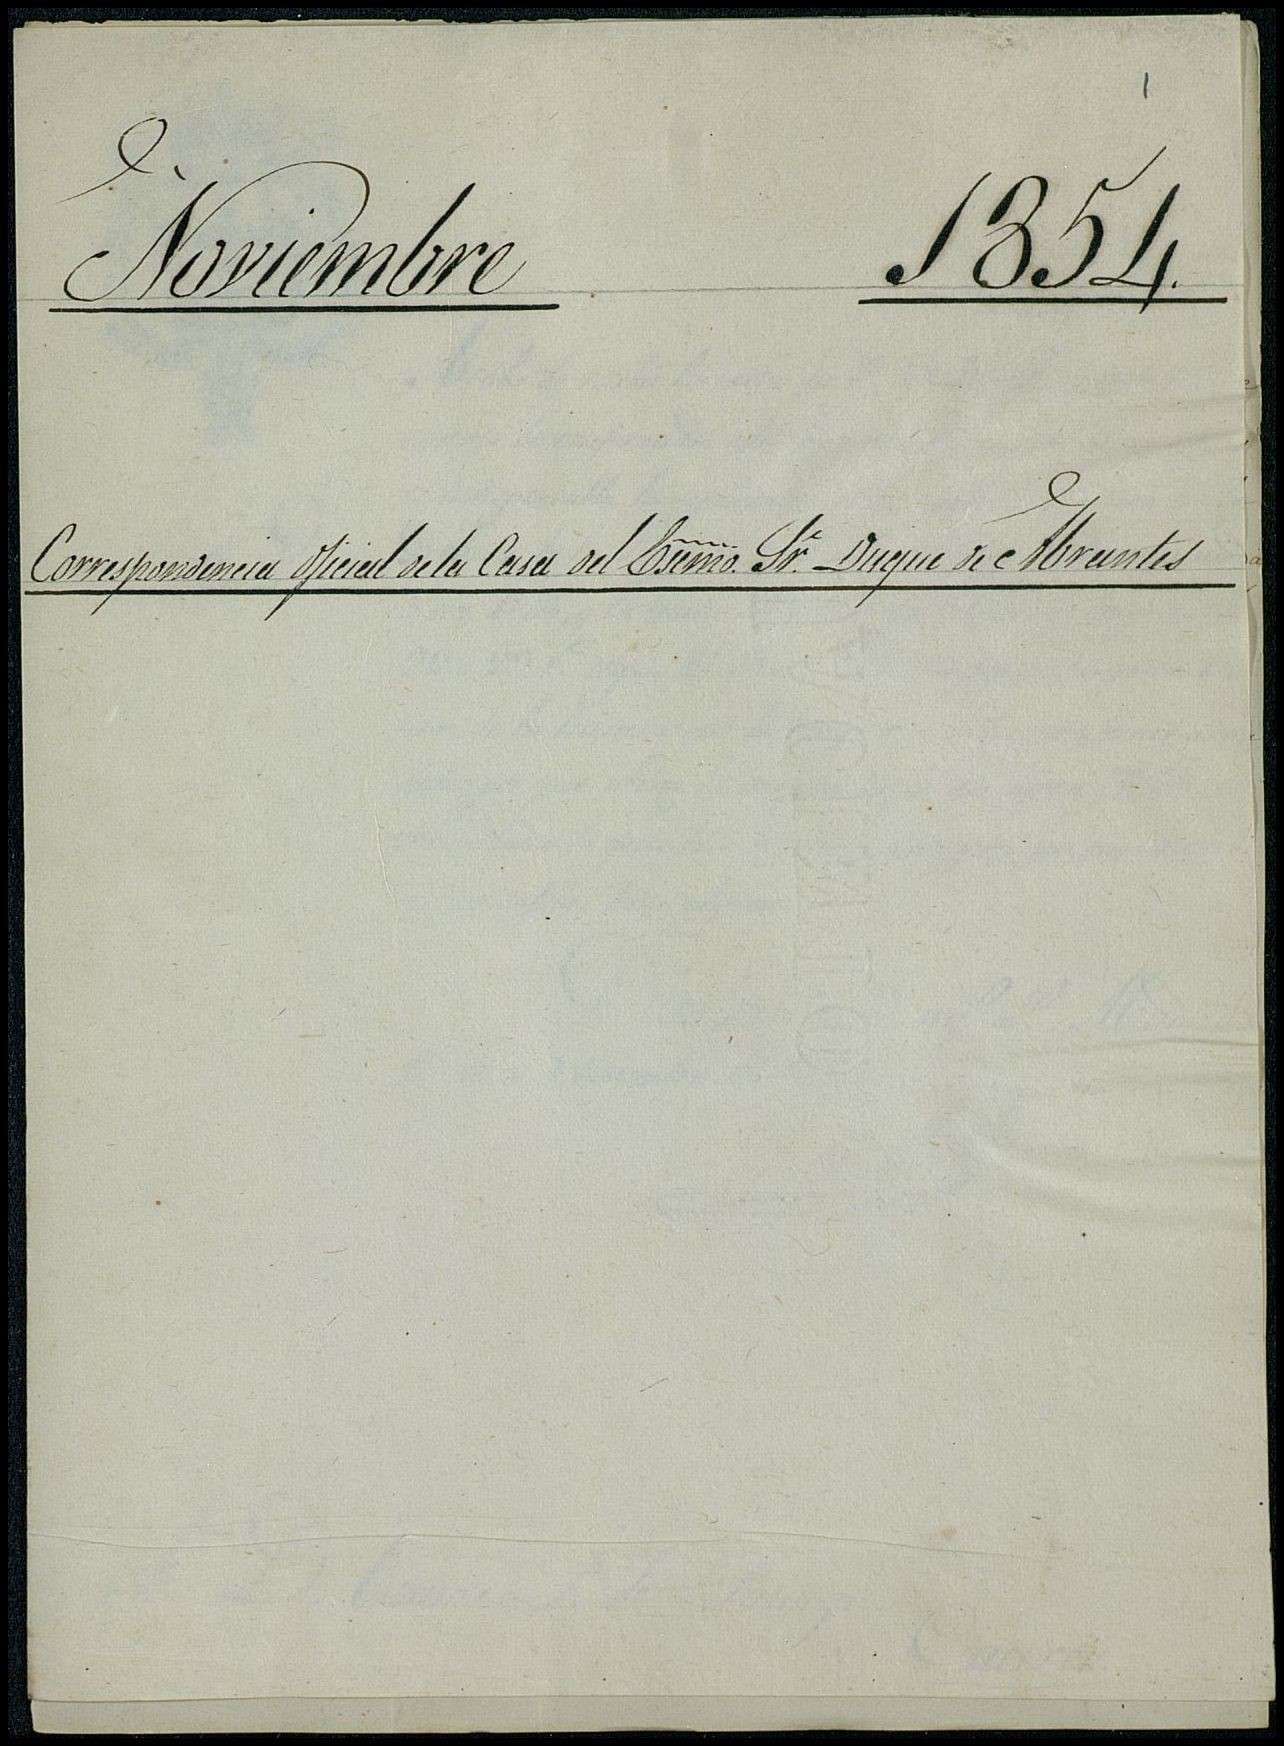 1
Noviembre 1854.
Correspondencia oficial de la Casa del Esc̃mo. Sr. Duque de Abrantes